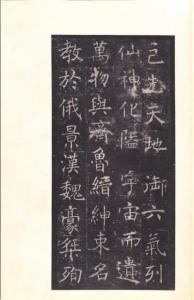 已先天地御六氣列
仙神化隘宇宙而遺
萬物與齊魯縉紳束名
教於俄景漢魏豪桀殉